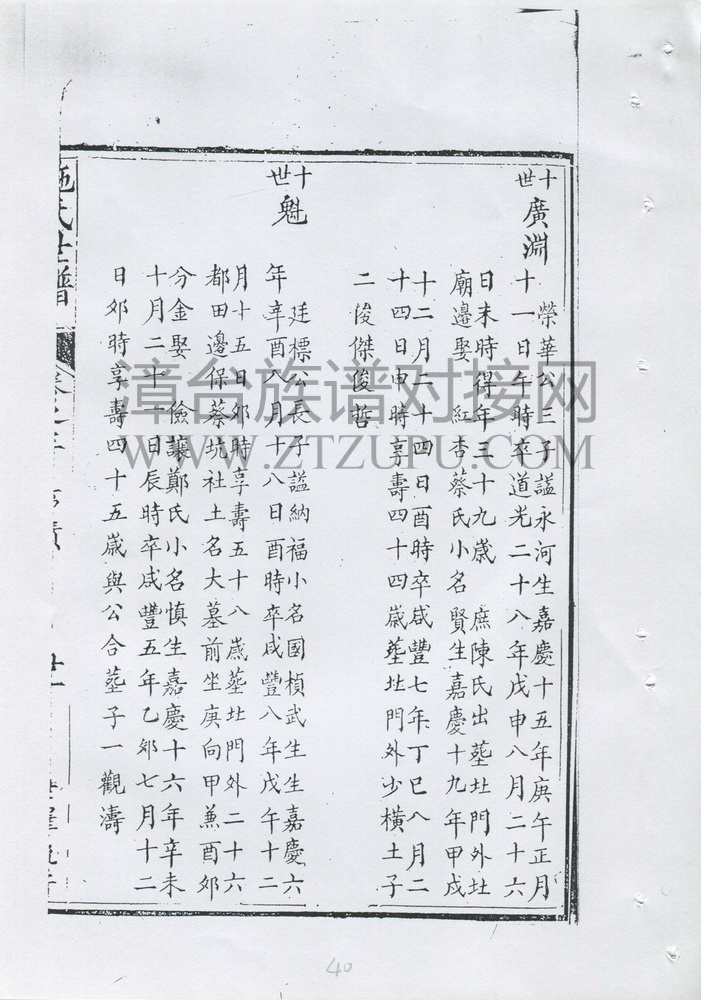 十世
廣淵
榮華公三子謚永河生嘉慶十五年庚午正月
十一日午時卒道光二十八年戊申八月二十六
日未時得年三十九歲 庶陳氏出塟北門外北
廟邊娶 紅杏蔡氏小名賢生嘉慶十九年甲戌
十二月二十四日酉時卒咸豐七年丁巳八月二
十四日申時享壽四十四歲塟北門外少橫土子
二俊傑俊哲
十世
魁
廷標公長子謚納福小名國楨武生生嘉慶六
年辛酉八月十八日酉時卒咸豐八年戊午十二
月十五日夘時享壽五十八歲塟北門外二十六
都田邊保蔡坑社土名大墓前坐庚向甲兼酉夘
分金娶 儉讓鄭氏小名慎生嘉慶十六年辛未
十月二十一日辰時卒咸豐五年乙夘七月十二
日夘時享壽四十五歲與公合塟子一觀濤
施氏世譜
卷之
漳台族谱对接网
WWW.ZTZUPU.COM
40